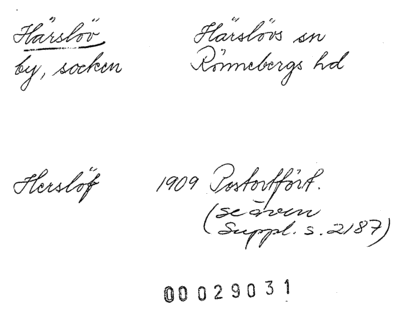 Härslöv Härslövs sn
by, socken Rönnebergs hd
Herslöf 1909 Postortfört.
(se även
Suppl. s. 2187)
00029031